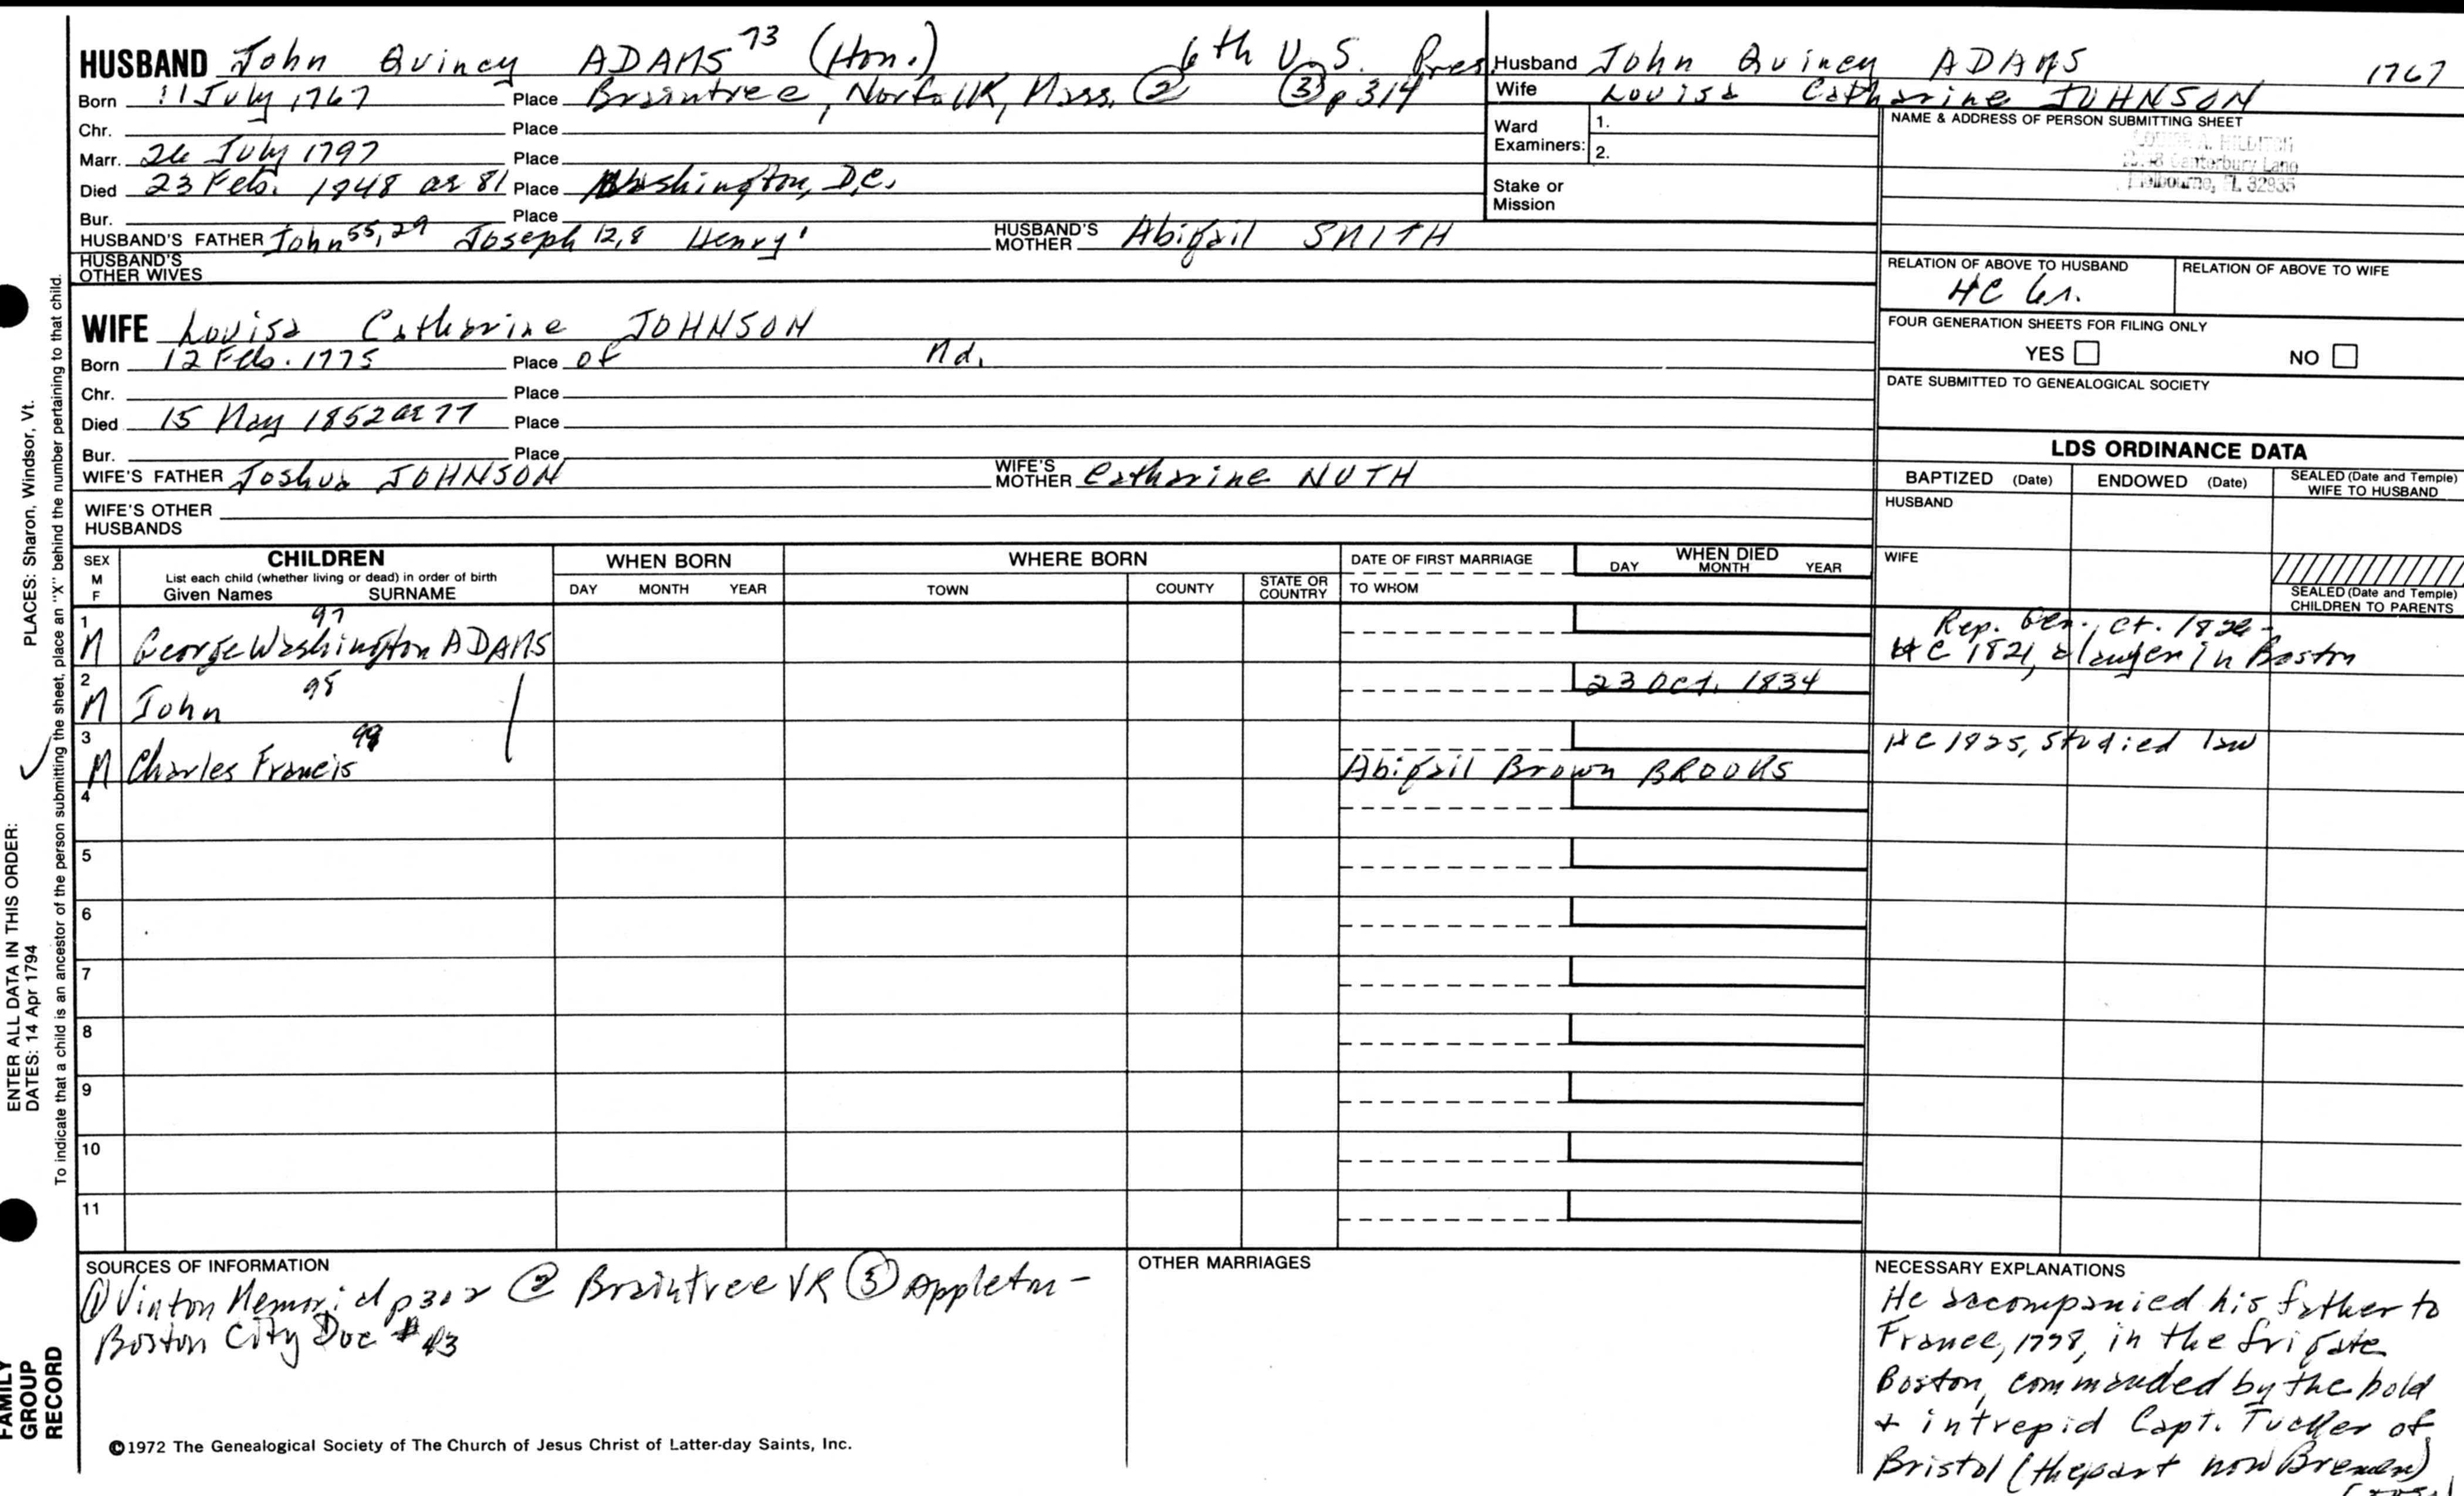 HUSBAND John Quincy ADAMS 73 (Hon.) 6th U.S. Pres.
Born 11 July 1767 Place Braintree, Norfolk, Mass. ② ③ p 314
Chr. Place
Marr. 26 July 1797 Place
Died 23 Feb. 1848 ae 81 Place Washington, D.C.
Bur. Place
HUSBAND'S FATHER John 55,29 Joseph 12,8 Henry 1 HUSBAND'S MOTHER Abigail SMITH
HUSBAND'S OTHER WIVES
WIFE Louisa Catharine JOHNSON
Born 12 Feb. 1775 Place of Md.
Chr. Place
Died 15 May 1852 ae 77 Place
Bur. Place
WIFE'S FATHER Joshua JOHNSON WIFE'S MOTHER Catharine NUTH
WIFE'S OTHER HUSBANDS
Husband John Quincy ADAMS 1767
Wife Louisa Catharine JOHNSON
Ward Examiners: 1.
2.
Stake or Mission
NAME & ADDRESS OF PERSON SUBMITTING SHEET
Canterbury Lane
Melbourne, FL 32935
RELATION OF ABOVE TO HUSBAND RELATION OF ABOVE TO WIFE
HC Gr.
FOUR GENERATION SHEETS FOR FILING ONLY
YES NO
DATE SUBMITTED TO GENEALOGICAL SOCIETY
LDS ORDINANCE DATA
BAPTIZED (Date) ENDOWED (Date) SEALED (Date and Temple) WIFE TO HUSBAND
HUSBAND
WIFE
SEALED (Date and Temple) CHILDREN TO PARENTS
SEX M F CHILDREN WHEN BORN WHERE BORN DATE OF FIRST MARRIAGE WHEN DIED
List each child (whether living or dead) in order of birth
Given Names SURNAME DAY MONTH YEAR TOWN COUNTY STATE OR COUNTRY TO WHOM DAY MONTH YEAR
1 M George Washington ADAMS 97 Rep. Gen. Ct. 1826-
HC 1821, a lawyer in Boston
2 M John 98 23 Oct. 1834
3 M Charles Francis 99 Abigail Brown BROOKS HC 1825, studied law
4
5
6
7
8
9
10
11
SOURCES OF INFORMATION
① Vinton Memorial p 302 ② Braintree VR ③ Appleton-
Boston City Doc # 43
OTHER MARRIAGES
NECESSARY EXPLANATIONS
He accompanied his father to
France, 1778, in the frigate
Boston, commanded by the bold
+ intrepid Capt. Tucker of
Bristol (the part now Bremen)
©1972 The Genealogical Society of The Church of Jesus Christ of Latter-day Saints, Inc.
FAMILY GROUP RECORD
ENTER ALL DATA IN THIS ORDER:
DATES: 14 Apr 1794
PLACES: Sharon, Windsor, Vt.
To indicate that a child is an ancestor of the person submitting the sheet, place an "X" behind the number pertaining to that child.